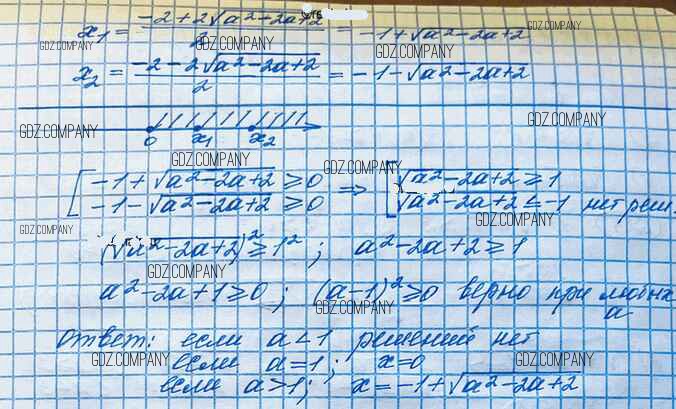 x₁ = (-2+2√(a²-2a+2))/2 = -1+√(a²-2a+2)
GDZ.COMPANY GDZ.COMPANY GDZ.COMPANY
x₂ = (-2-2√(a²-2a+2))/2 = -1-√(a²-2a+2)
GDZ.COMPANY GDZ.COMPANY
0 x₁ x₂
GDZ.COMPANY GDZ.COMPANY
[ -1+√(a²-2a+2) ≥ 0 ⇒ [ √(a²-2a+2) ≥ 1
-1-√(a²-2a+2) ≥ 0 √(a²-2a+2) ≤ -1 нет реш.
GDZ.COMPANY GDZ.COMPANY GDZ.COMPANY
(√(a²-2a+2))² ≥ 1²; a²-2a+2 ≥ 1
GDZ.COMPANY
a²-2a+1 ≥ 0; (a-1)² ≥ 0 верно при любых
a
GDZ.COMPANY GDZ.COMPANY
Ответ: если a < 1 решений нет
если a = 1; x = 0
GDZ.COMPANY GDZ.COMPANY GDZ.COMPANY
если a > 1; x = -1+√(a²-2a+2)